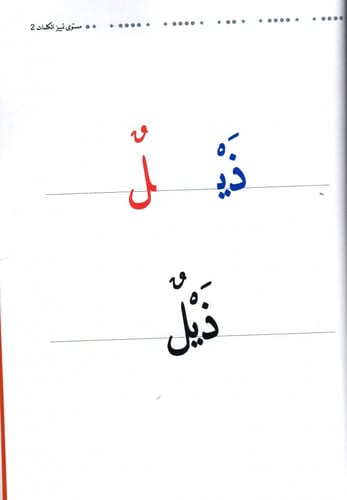 مستوى تمييز الكلمات 2
ذَيْـ ـلٌ
ذَيْلٌ